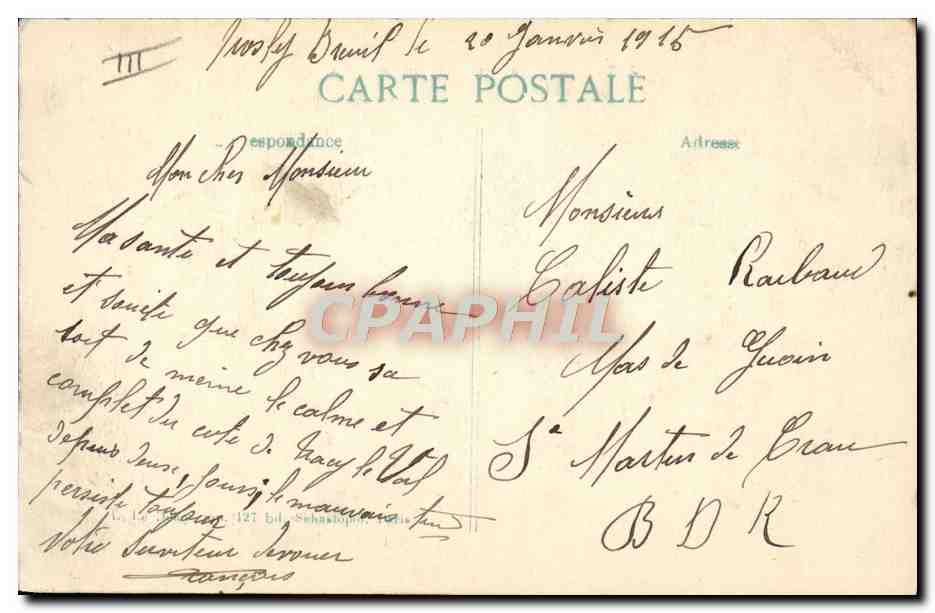 III
Trosly Breuil le 20 Janvier 1915
CARTE POSTALE
espondance
Adresse
Mon cher Monsieur
Ma santé et toujour bonne
et souete que chez vous sa
soit de meme le calme et
complet du coté de Tracy le Val
depuis deux jours, le mauvais tem
persiste toujour
Votre serviteur devouer
François
Monsieur
Caliste Raibaud
Mas de
St Martin de Crau
B D R
127 Bd. Sébastopol, Paris
CPAPHIL